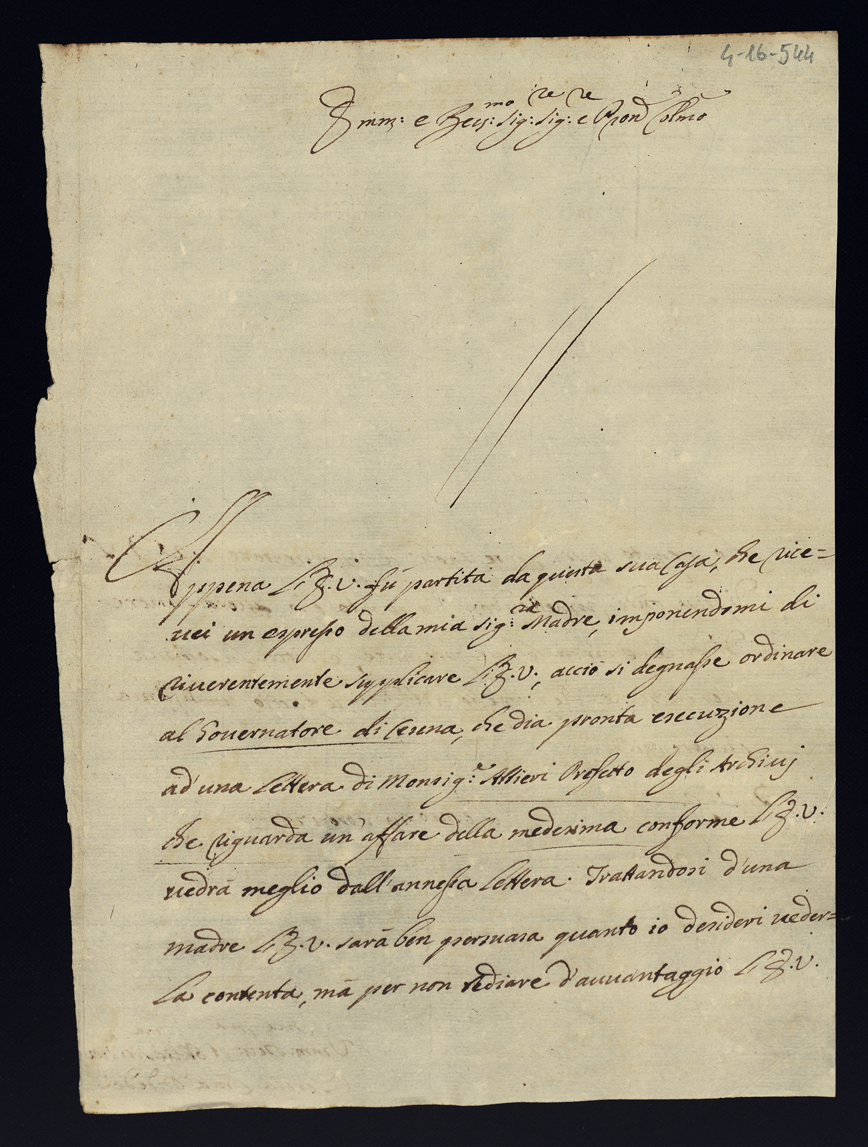 4-16-544
Emin: e Reu: mo Sig: re Sig: re e Pron Colmo
Appena L'E.V. fù partita da questa sua Casa, che rice=
uei un espresso della mia Sig: ra Madre, imponendomi di
riuerentemente supplicare L'E.V., acciò si degnasse ordinare
al Gouernatore di Cesena, che dia pronta esecuzione
ad'una Lettera di Monsig: e Altieri Prefetto degli Archiuj
che riguarda un affare della medesima conforme L'E.V.
uedrà meglio dall'annessa Lettera. Trattandosi d'una
madre L'E.V. sarà ben persuasa quanto io desideri ueder=
La contenta, mà per non tediare d'auuantaggio L'E.V.